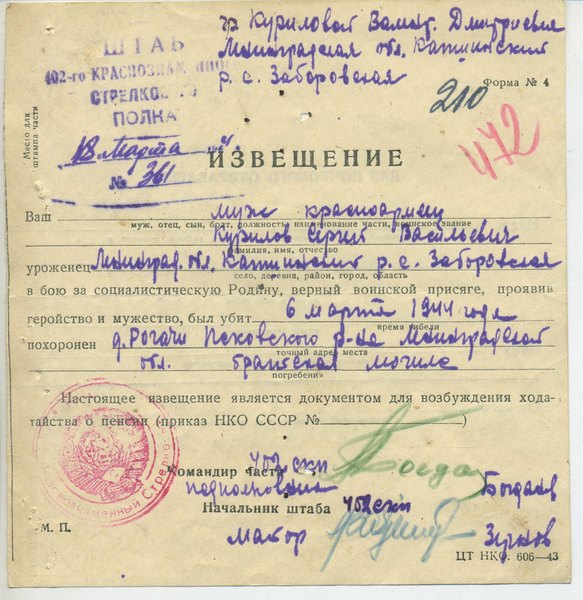 гр Куриловой Дмитриевне
ШТАБ
Ленинградская обл.
402-го КРАСНОЗНАМЕННОГО
р. с. Заборовская
СТРЕЛКОВОГО
Форма № 4
ПОЛКА
210
472
Место для штампа части
18 Марта
№ 361
ИЗВЕЩЕНИЕ
Ваш муж красноармеец
муж, отец, сын, брат, должность, наименование части, воинское звание
Курилов Сергей Васильевич
фамилия, имя, отчество
уроженец Ленинград. обл. р. с. Заборовская
село, деревня, район, город, область
в бою за социалистическую Родину, верный воинской присяге, проявив
геройство и мужество, был убит 6 марта 1944 года
время гибели
похоронен д. Рогачи Псковского р-на Ленинградской
точный адрес места
обл. братская могила
погребения
Настоящее извещение является документом для возбуждения хода-
тайства о пенсии (приказ НКО СССР № )
Командир части 402 скп
подполковник Богданов
Начальник штаба 402 скп
майор Зернов
М. П.
ЦТ НКО. 606—43